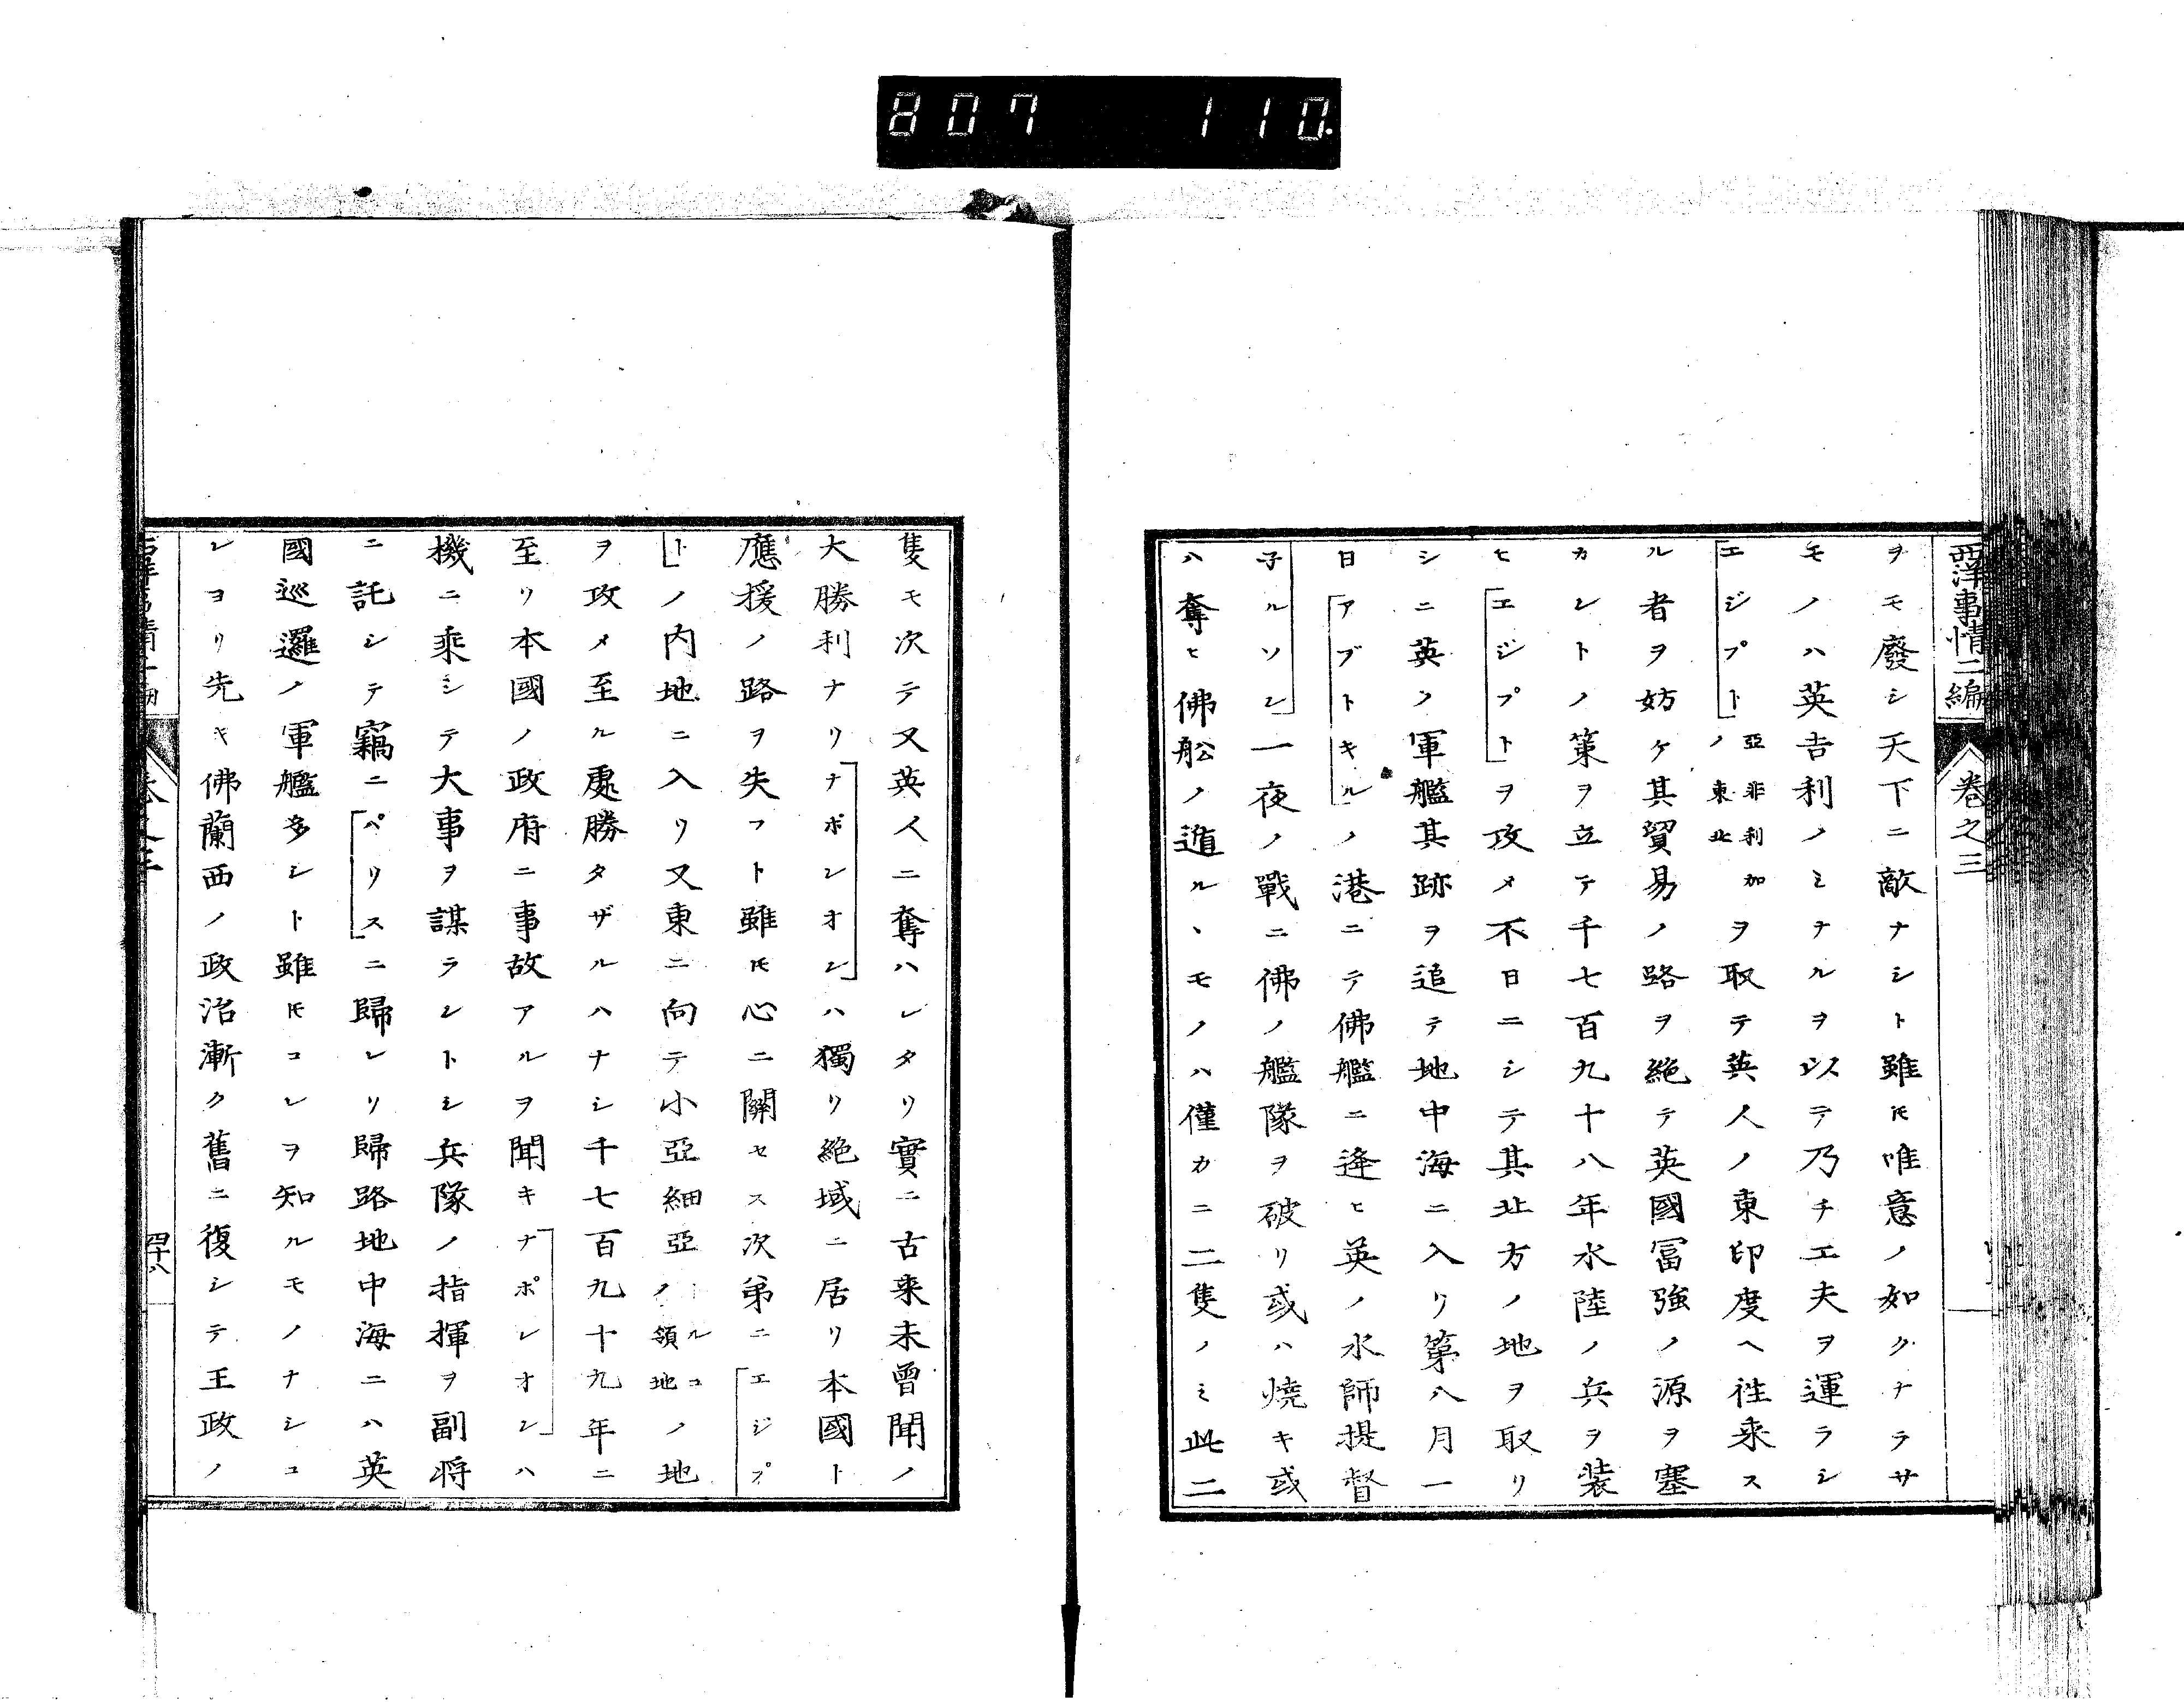 807 110.
西洋事情二編 卷之三
ヲモ廢シ天下ニ敵ナシト雖𪜈唯意ノ如クナラサ
モノハ英吉利ノミナルヲ以テ乃チ工夫ヲ運ラシ
「エジプト」亞非利加ノ東北ヲ取テ英人ノ東印度ヘ徃来ス
ル者ヲ妨ケ其貿易ノ路ヲ絶テ英國冨強ノ源ヲ塞
カントノ策ヲ立テ千七百九十八年水陸ノ兵ヲ装
ヒ「エジプト」ヲ攻メ不日ニシテ其北方ノ地ヲ取リ
シニ英ノ軍艦其跡ヲ追テ地中海ニ入リ第八月一
日「アブトキル」ノ港ニテ佛艦ニ逢ヒ英ノ水師提督
子ルソン」一夜ノ戰ニ佛ノ艦隊ヲ破リ或ハ焼キ或
ハ奪ヒ佛舩ノ遁ルヽモノハ僅カニ二隻ノミ此二
隻モ次テ又英人ニ奪ハレタリ實ニ古来未曾聞ノ
大勝利ナリ「ナポレオン」ハ獨リ絶域ニ居リ本國ト
應援ノ路ヲ失フト雖𪜈心ニ關セス次第ニ「エジプ
ト」ノ内地ニ入リ又東ニ向テ小亞細亞トルコノ領地ノ地
ヲ攻メ至ル處勝タザルハナシ千七百九十九年ニ
至リ本國ノ政府ニ事故アルヲ聞キ「ナポレオン」ハ
機ニ乘シテ大事ヲ謀ラントシ兵隊ノ指揮ヲ副将
ニ託シテ竊ニ「パリス」ニ歸レリ歸路地中海ニハ英
國巡邏ノ軍艦多シト雖𪜈コレヲ知ルモノナシコ
レヨリ先キ佛蘭西ノ政治漸ク舊ニ復シテ王政ノ
四十八